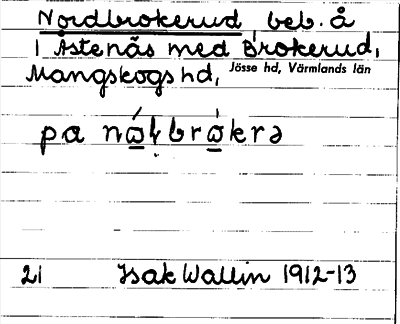 Nordbrokerud, beb. å
1 Åstenäs med Brokerud,
Mangskogs hd, Jösse hd, Värmlands län
pa
21 Isak Wallin 1912-13